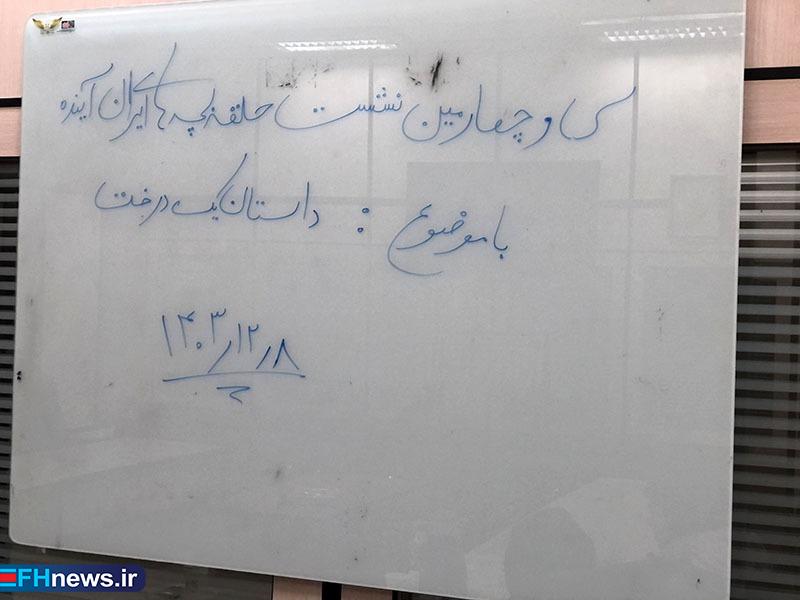 سی و چهارمین نشست حلقه بچه های ایران آینده
با موضوع : داستان یک درخت
۱۴۰۳/۱۲/۸
EFHnews.ir